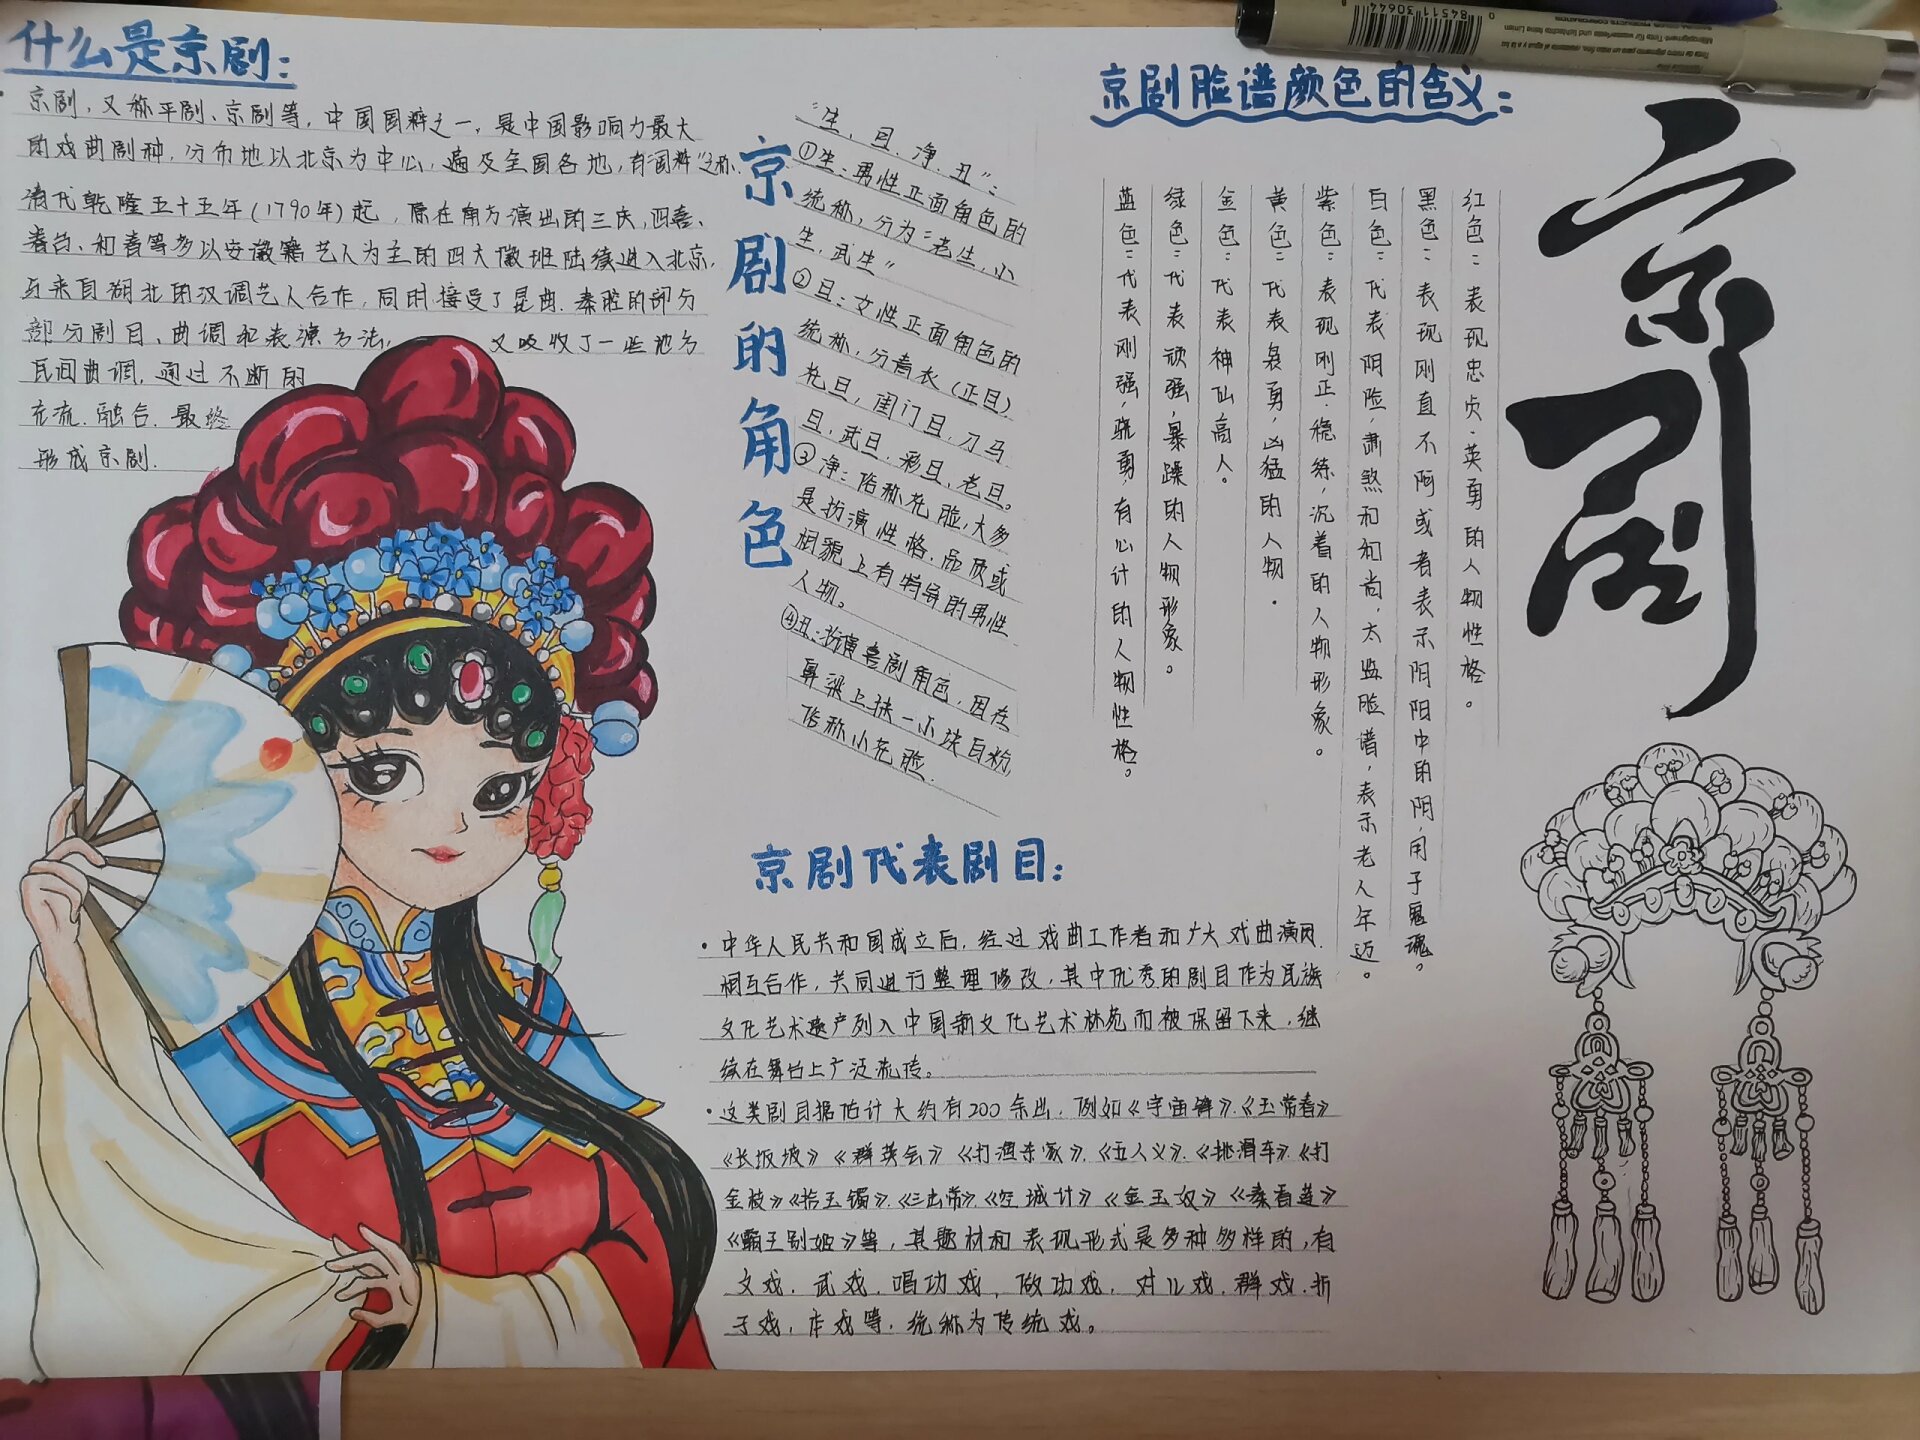 什么是京剧:
京剧，又称平剧、京剧等，中国国粹之一，是中国影响力最大
的戏曲剧种，分布地以北京为中心，遍及全国各地，有"国粹"之称.
清代乾隆五十五年(1790年)起，原在南方演出的三庆，四喜、
春台、和春等多以安徽籍艺人为主的四大徽班陆续进入北京，
与来自湖北的汉调艺人合作，同时接受了昆曲.秦腔的部分
部分剧目、曲调和表演方法，又吸收了一些地方
民间曲调，通过不断的
交流.融合.最终
形成京剧.
京剧的角色
"生，旦.净.丑":
①生:男性正面角色的
统称，分为:"老生，小
生，武生"
②旦:女性正面角色的
统称，分青衣(正旦)
花旦，闺门旦，刀马
旦，武旦，彩旦，老旦。
③净:俗称花脸，大多
是扮演性格.品质或
相貌上有特异的男性
人物。
④丑:扮演喜剧角色，因在
鼻梁上抹一小块白粉，
俗称小花脸.
京剧脸谱颜色的含义:
红色:表现忠贞.英勇的人物性格。
黑色:表现刚直不阿或者表示阴阳中的阴，用于鬼魂。
白色:代表阴险，肃煞和和尚，太监脸谱，表示老人年迈。
紫色:表现刚正.稳练，沉着的人物形象。
黄色:代表袅勇，凶猛的人物.
金色:代表神仙高人。
绿色:代表顽强，暴躁的人物形象。
蓝色:代表刚强，骁勇，有心计的人物性格。
京剧
京剧代表剧目:
·中华人民共和国成立后，经过戏曲工作者和广大戏曲演员
相互合作，共同进行整理修改，其中优秀的剧目作为民族
文化艺术遗产列入中国新文化艺术林苑而被保留下来，继
续在舞台上广泛流传。
·这类剧目据估计大约有200余出.例如《宇宙锋》.《玉常春》
《长坂坡》《群英会》《打渔杀家》.《五人义》.《挑滑车》.《打
金枝》《拾玉镯》.《三出常》.《空城计》《金玉奴》《秦香莲》
《霸王别姬》等，其题材和表现形式是多种多样的，有
文戏.武戏.唱功戏，做功戏，对儿戏.群戏.折
子戏，本戏等.统称为传统戏。